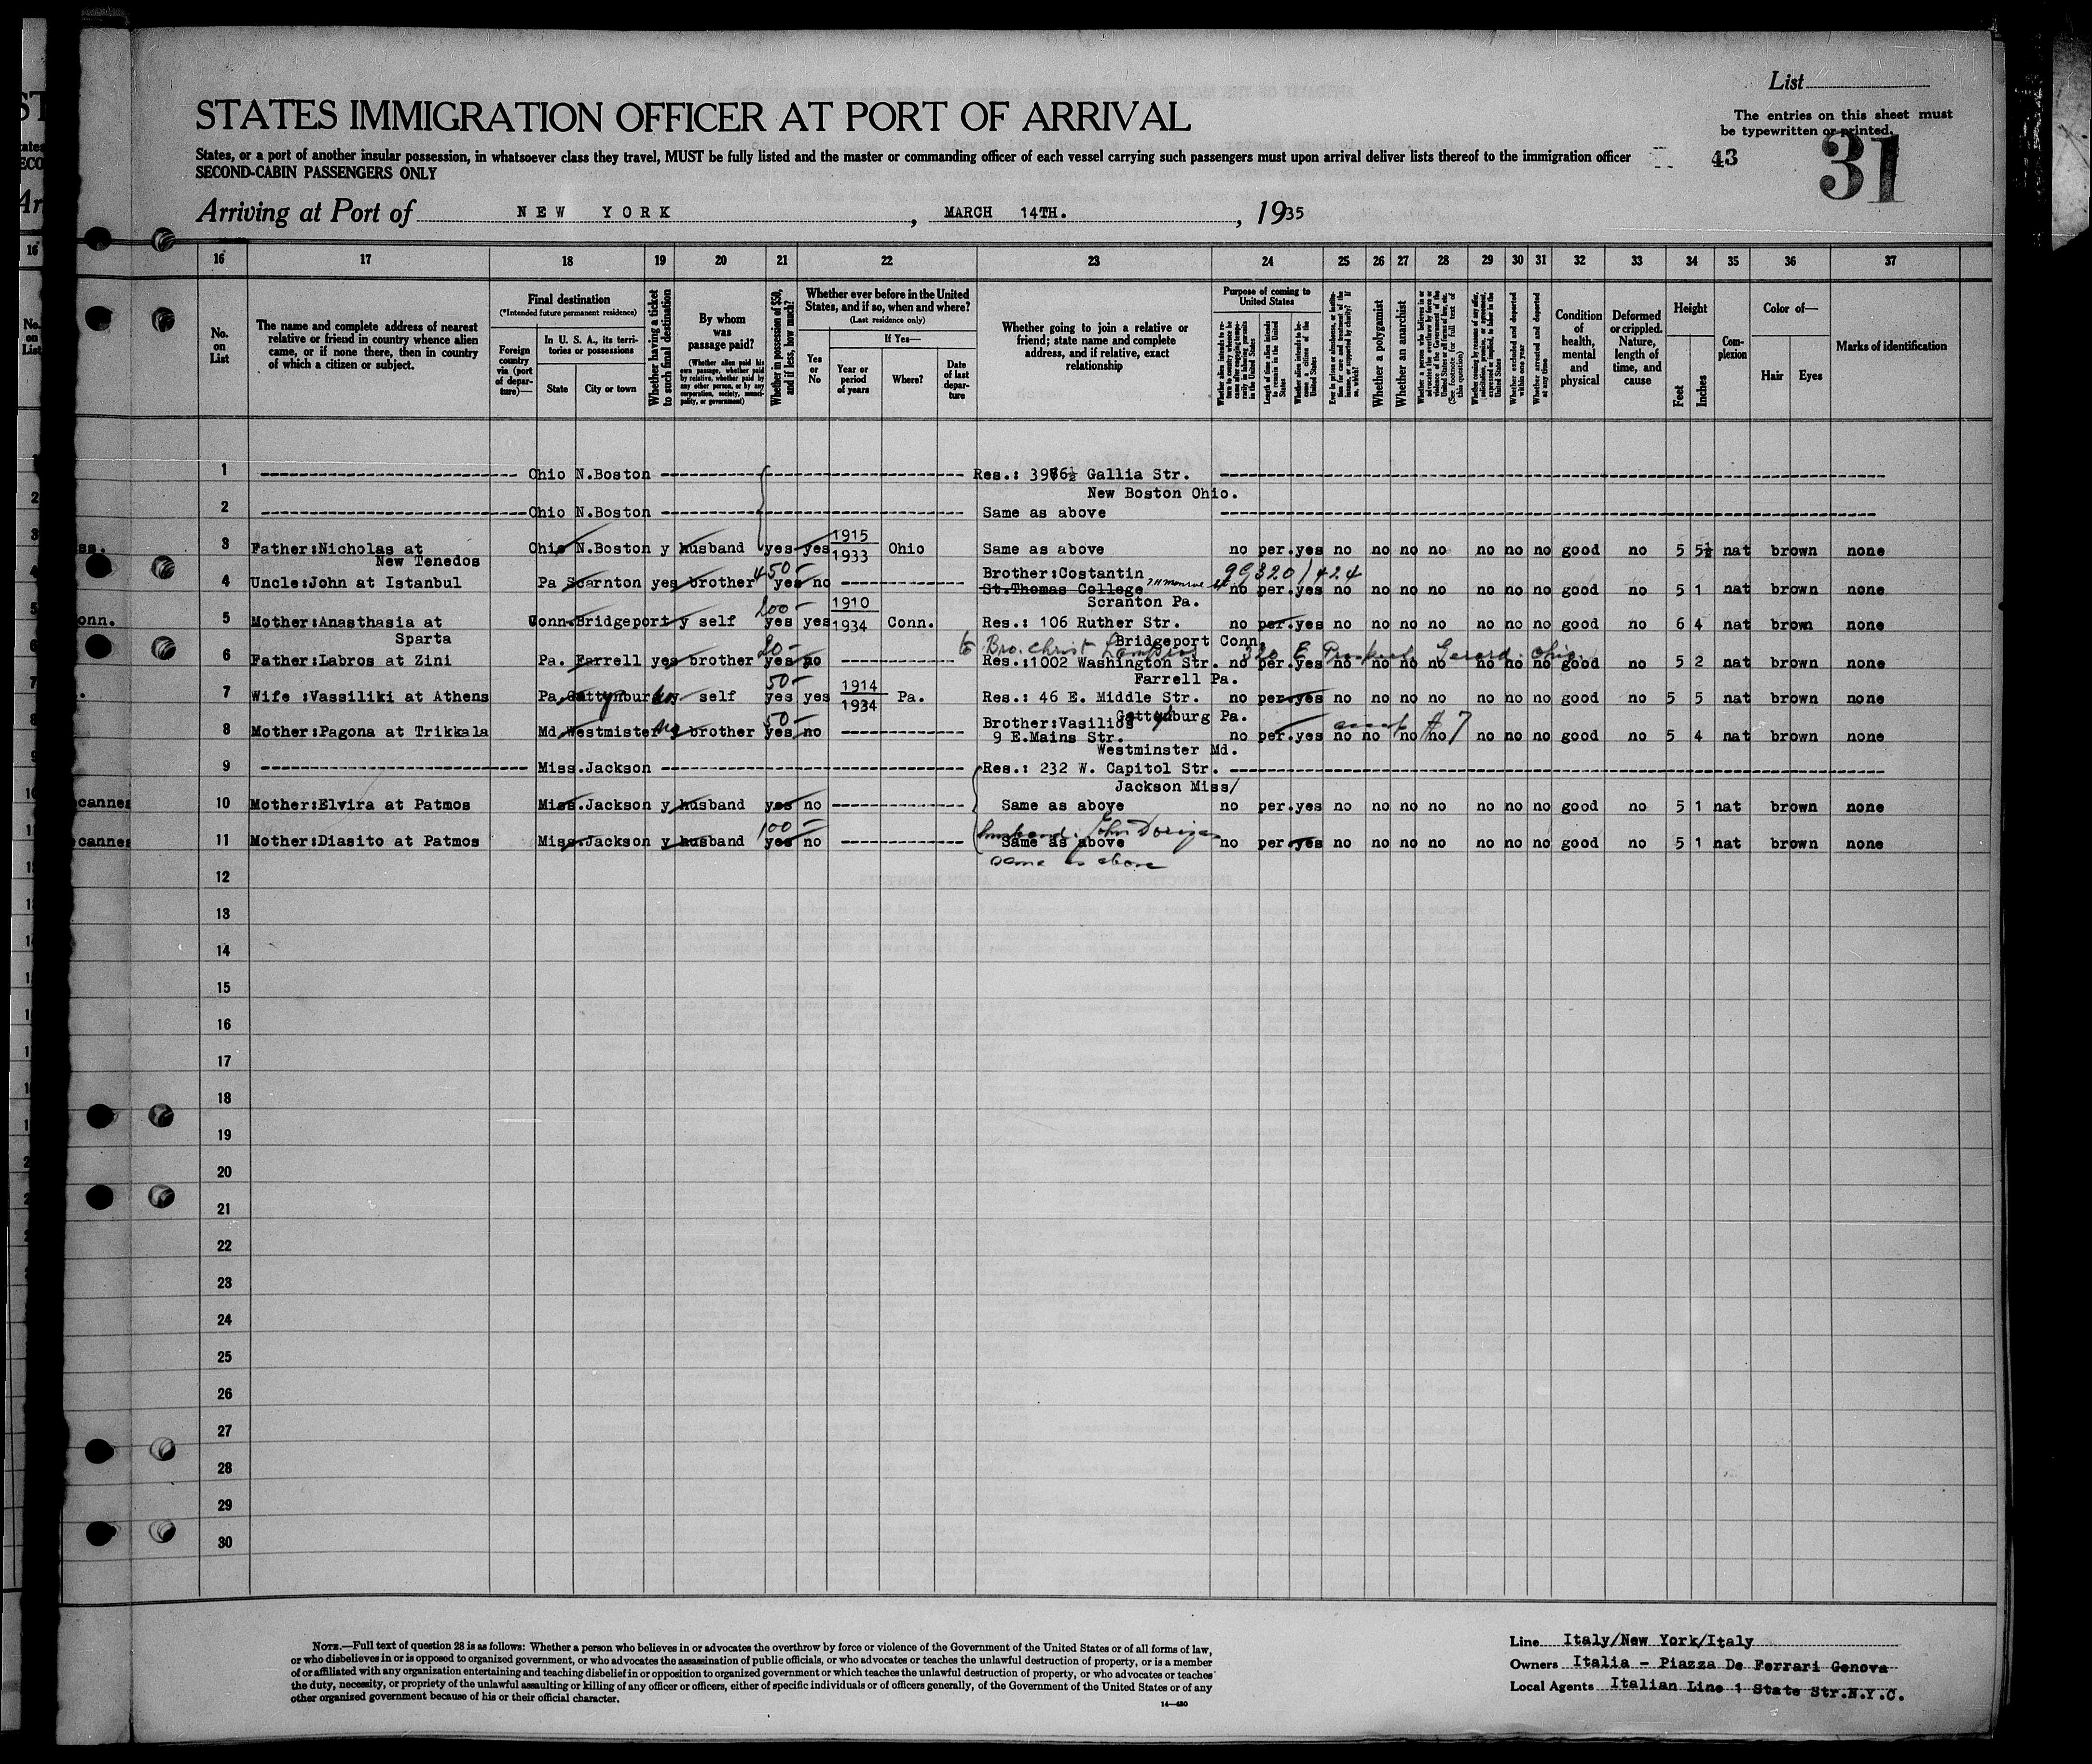 List
STATES IMMIGRATION OFFICER AT PORT OF ARRIVAL
The entries on this sheet must
be typewritten or printed.
States, or a port of another insular possession, in whatsoever class they travel, MUST be fully listed and the master or commanding officer of each vessel carrying such passengers must upon arrival deliver lists thereof to the immigration officer
SECOND-CABIN PASSENGERS ONLY
43
31
Arriving at Port of NEW YORK, MARCH 14TH., 1935
16 17 18 19 20 21 22 23 24 25 26 27 28 29 30 31 32 33 34 35 36 37
No. on List
The name and complete address of nearest relative or friend in country whence alien came, or if none there, then in country of which a citizen or subject.
Final destination
(*Intended future permanent residence)
Foreign country via (port of departure)—
In U. S. A., its territories or possessions
State
City or town
Whether having a ticket to such final destination
By whom was passage paid?
(Whether alien paid his own passage, whether paid by relative, whether paid by any other person, or by any corporation, society, municipality, or government)
Whether in possession of $50, and if less, how much?
Whether ever before in the United States, and if so, when and where?
(Last residence only)
Yes or No
If Yes—
Year or period of years
Where?
Date of last departure
Whether going to join a relative or friend; state name and complete address, and if relative, exact relationship
Purpose of coming to United States
Length of time alien intends to remain in the United States
Whether alien intends to become a citizen of the United States
Whether a polygamist
Whether an anarchist
Whether excluded and deported within one year
Whether arrested and deported at any time
Condition of health, mental and physical
Deformed or crippled. Nature, length of time, and cause
Height
Feet
Inches
Complexion
Color of—
Hair
Eyes
Marks of identification
1 Ohio N.Boston Res.: Gallia Str.
New Boston Ohio.
2 Ohio N.Boston Same as above
3 Father:Nicholas at Ohio N.Boston y husband yes yes 1915 1933 Ohio Same as above no per.yes no no no no no no no good no 5 5½ nat brown none
New Tenedos
50-
99320/424
4 Uncle:John at Istanbul Pa Scarnton yes brother yes no Brother:Costantin no per.yes no no no no no no no good no 5 1 nat brown none
St.Thomas College
Scranton Pa.
200-
5 Mother:Anasthasia at Conn.Bridgeport y self yes yes 1910 1934 Conn. Res.: 106 Ruther Str. no per.yes no no no no no no no good no 6 4 nat brown none
Sparta
Bridgeport Conn.
20-
Bro. Christ 320 E Ohio
6 Father:Labros at Zini Pa. Farrell yes brother yes no Res.:1002 Washington Str. no per.yes no no no no no no no good no 5 2 nat brown none
Farrell Pa.
50-
7 Wife :Vassiliki at Athens Pa self yes yes 1914 1934 Pa. Res.: 46 E. Middle Str. no per.yes no no no no no no no good no 5 5 nat brown none
50-
8 Mother:Pagona at Trikkala Md Westmister brother yes no Brother:Vasilios no per.yes no no no no no no no good no 5 4 nat brown none
9 E.Mains Str.
Westminster Md.
9 Miss.Jackson Res.: 232 W. Capitol Str.
Jackson Miss/
10 Mother:Elvira at Patmos Miss.Jackson y husband yes no Same as above no per.yes no no no no no no no good no 5 1 nat brown none
100-
husband: John
11 Mother:Diasito at Patmos Miss.Jackson y husband yes no Same as above no per.yes no no no no no no no good no 5 1 nat brown none
same as above
12
13
14
15
16
17
18
19
20
21
22
23
24
25
26
27
28
29
30
NOTE.—Full text of question 28 is as follows: Whether a person who believes in or advocates the overthrow by force or violence of the Government of the United States or of all forms of law,
or who disbelieves in or is opposed to organized government, or who advocates the assassination of public officials, or who advocates or teaches the unlawful destruction of property, or is a member
of or affiliated with any organization entertaining and teaching disbelief in or opposition to organized government or which teaches the unlawful destruction of property, or who advocates or teaches
the duty, necessity, or propriety of the unlawful assaulting or killing of any officer or officers, either of specific individuals or of officers generally, of the Government of the United States or of any
other organized government because of his or their official character.
14—480
Line Italy/New York/Italy
Owners Italia - Piazza De Ferrari Genova
Local Agents Italian Line 1 State Str.N.Y.C.